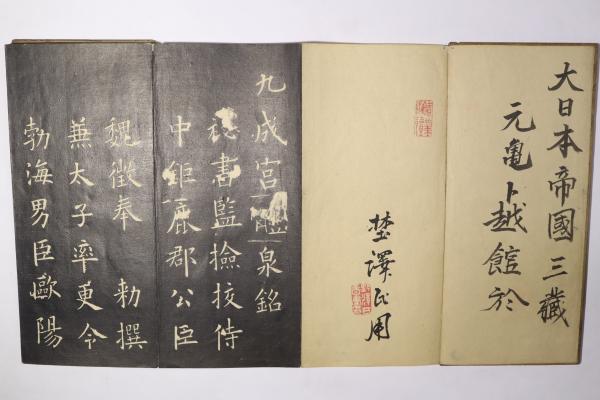 大日本帝國三藏
元亀卜越館於
埜澤氏用
九成宮醴泉銘
秘書監撿挍侍
中鉅鹿郡公臣
魏徵奉 勅撰
兼太子率更令
勃海男臣歐陽